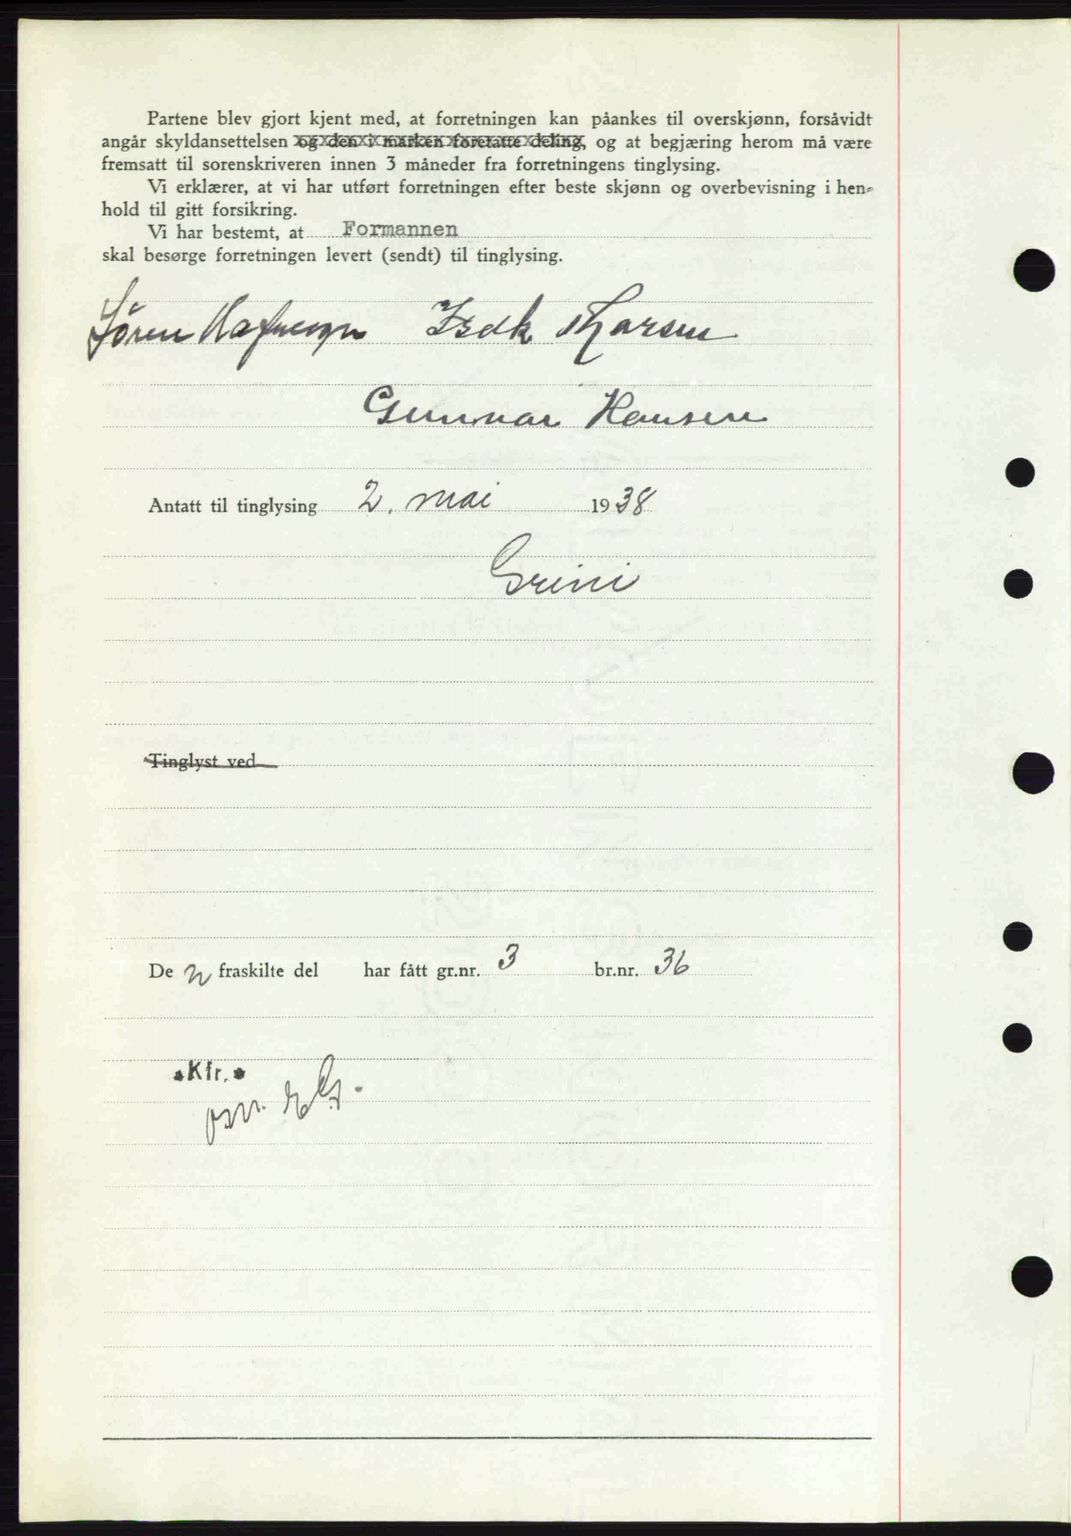 Partene blev gjort kjent med, at forretningen kan påankes til overskjønn, forsåvidt
angår skyldansettelsen og den i marken foretatte deling, og at begjæring herom må være
fremsatt til sorenskriveren innen 3 måneder fra forretningens tinglysing.
Vi erklærer, at vi har utført forretningen efter beste skjønn og overbevisning i hen-
hold til gitt forsikring.
Vi har bestemt, at Formannen
skal besørge forretningen levert (sendt) til tinglysing.
Søren Fredk Larsen
Gunnar Hansen
Antatt til tinglysing 2. mai 1938
Grini
Tinglyst ved
De n fraskilte del har fått gr.nr. 3 br.nr. 36
Kfr.